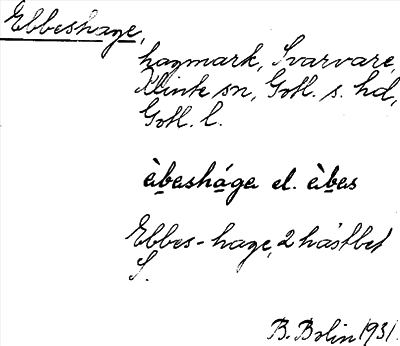 Ebbeshage,
hagmark, Svarvare,
Klinte sn, Gotl. s. hd,
Gotl. l.
àbesháge el. àbes
Ebbes-hage, 2 hästbet
S.
B. Bolin 1931.